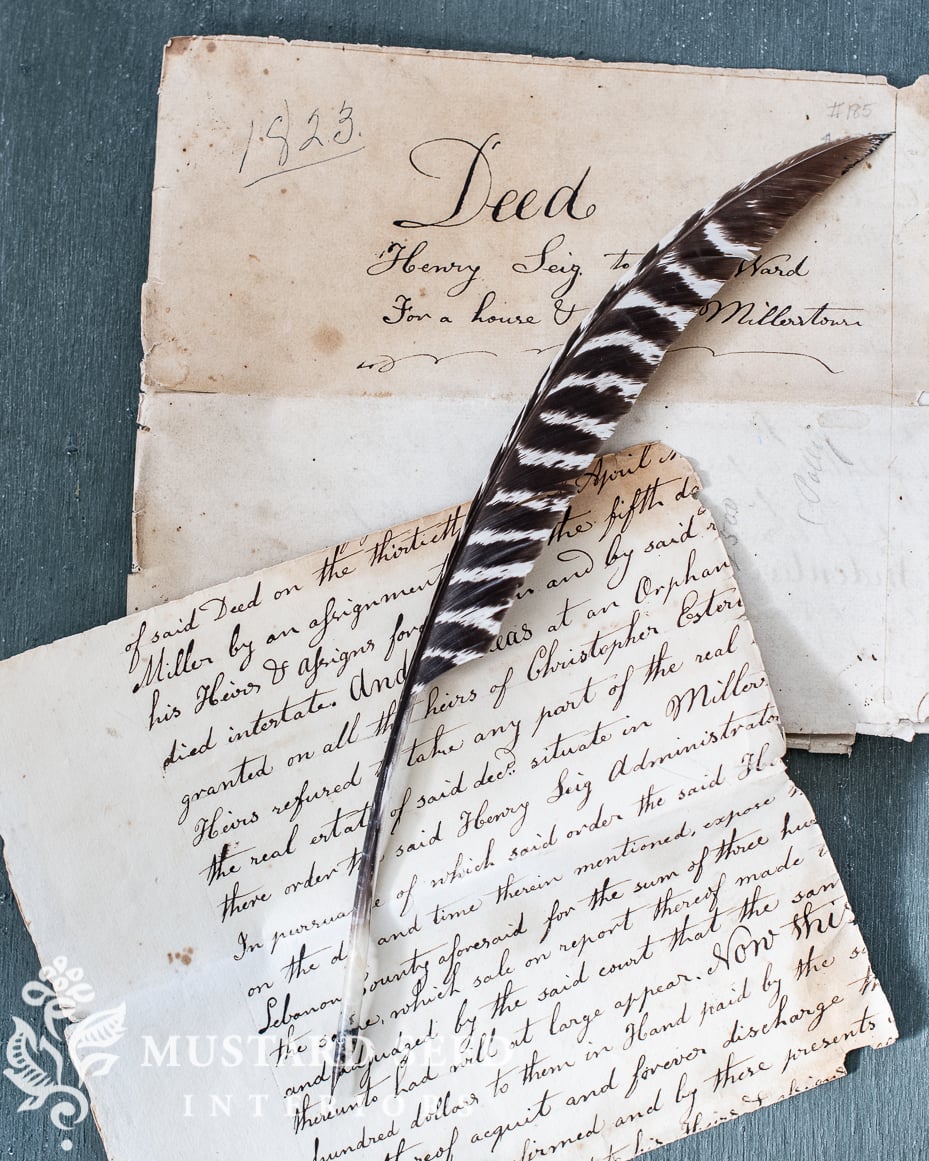 1823.
#185
Deed
Henry Seig to Ward
For a house & Millerstown
April
of said Deed on the thirtieth the fifth da
Miller by an assignment and by said
his Heirs & assigns for
died intestate. And eas at an Orphan
granted on all the heirs of Christopher Ester
Heirs refused take any part of the real
the real estate of said decd. situate in Millers
there order the said Henry Seig Administrator
In pursuance of which said order the said H
on the d and time therein mentioned, expose
Lebanon County aforesaid for the sum of three hun
the same, which sale on report thereof made
and by the said court that the sam
thereunto had will at large appear. Now this
hundred dollars to them in Hand paid by the sa
thereof acquit and forever discharge th
irmed and by these presents
MUSTARD SEED
INTERIORS